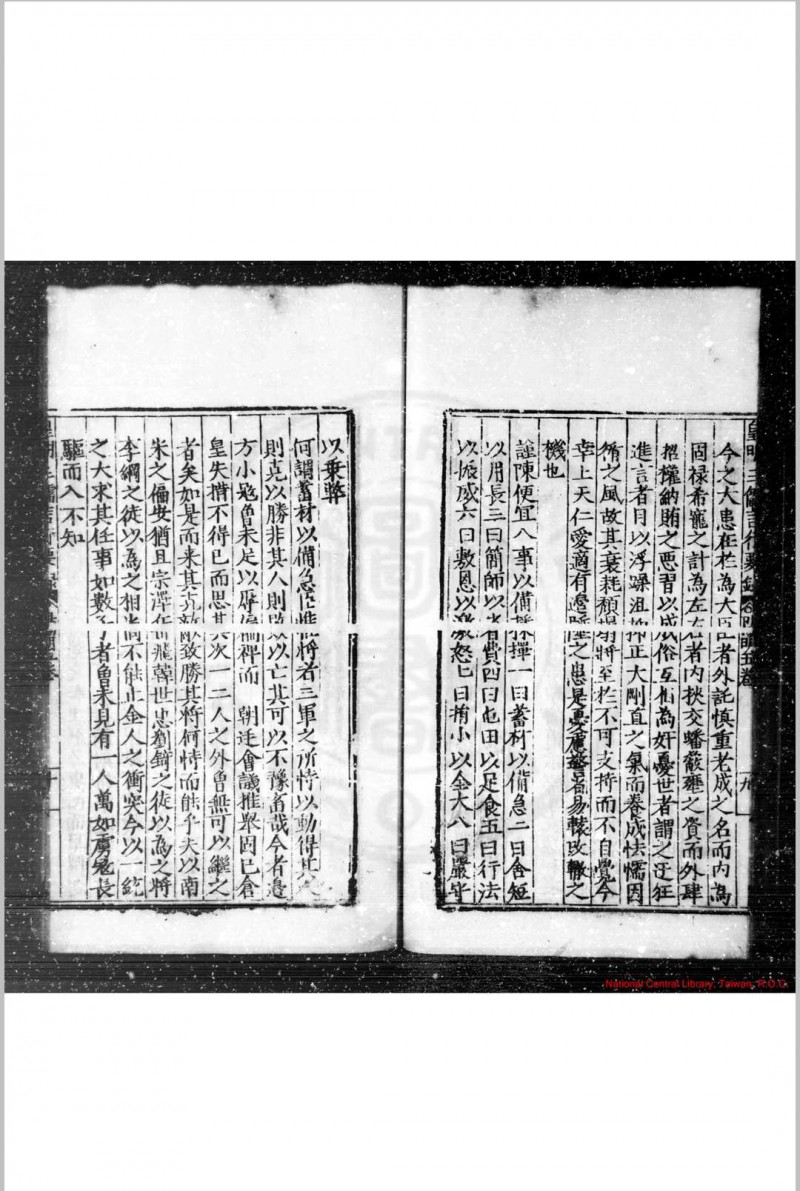 皇明三儒言行要錄
今之大患在於為大臣者外託慎重老成之名而內為
固祿希寵之計為左右者內挾交蟠蔽壅之資而外肆
招權納賄之惡習以成俗互相為奸憂世者謂之迂狂
進言者目以浮躁沮抑正大剛直之氣而養成怯懦因
循之風故其衰耗頹塌將至於不可支持而不自覺今
幸上天仁愛適有邊陲之患是憂慮警省易轅改轍之
機也
謹陳便宜八事以備採擇一曰蓄材以備急二曰舍短
以用長三曰簡師以省費四曰屯田以足食五曰行法
以振威六曰敷恩以激怒七曰捐小以全大八曰嚴守
以乗弊
何謂蓄材以備急臣惟將者三軍之所恃以動得其人
則克以勝非其人則敗以亡其可以不豫蓄哉今者邉
方小冦曾未足以辱偏裨而 朝廷會議推舉固已倉
皇失措不得已而思其次一二人之外曾無可以繼之
者矣如是而求其克敵致勝其將何恃而能乎夫以南
宋之偏安猶且宗澤岳飛韓世忠劉錡之徒以為之將
李綱之徒以為之相尚不能止金人之衝突今以一統
之大求其任事如數子者曾未見有一人萬如虜冦長
驅而入不知